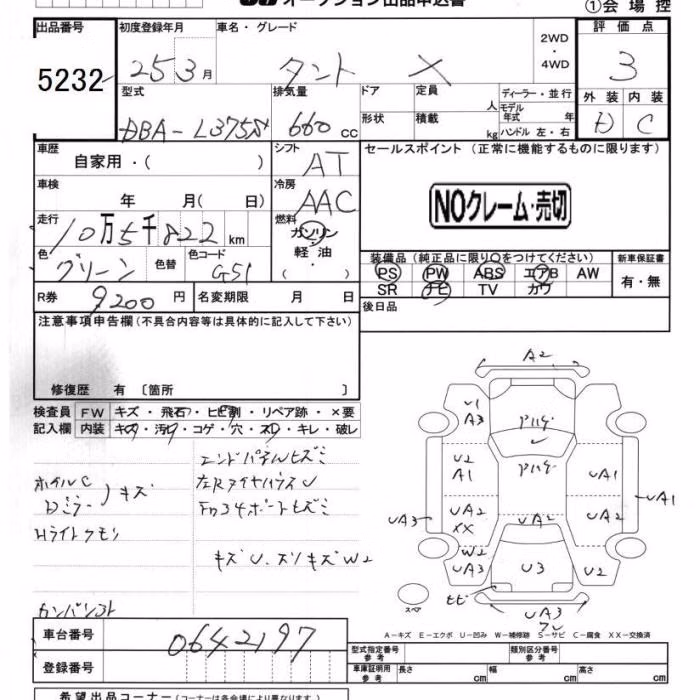 オークション出品申込書
①会場控
出品番号
5232
初度登録年月
25 3月
車名・グレード
タント X
2WD
・
4WD
評価点
3
型式
DBA-L375S
排気量
660 cc
ドア
定員
人
形状
積載
kg
ディーラー・並行
モデル年式 年
ハンドル 左・右
外装 内装
D C
車歴
自家用・( )
シフト
AT
車検
年 月( 日)
冷房
AAC
走行
10万5千822 km
燃料
ガソリン
軽油
( )
色
グリーン
色替
色コード
G51
R券
9200円
名変期限 月 日
セールスポイント (正常に機能するものに限ります)
NOクレーム・売切
装備品 (純正品に限り○をつけてください)
新車保証書
PS PW ABS エアB AW
SR ナビ TV カワ
有・無
後日品
注意事項申告欄 (不具合内容等は具体的に記入して下さい)
修復歴 有 〔箇所 〕
検査員
記入欄
FW キズ・飛石・ヒビ割・リペア跡・×要
内装 キズ・汚レ・コゲ・穴・スレ・キレ・破レ
エンドパネルヒズミ
ホイルC
Dミラー
キズ
左Rタイヤハウス U
Hライトクモリ
キズU、スリキズW2
A2
U1
A3
U2
A1
UA1
UA1
UA3
UA2
XX
UA2
UA2
W2
UA3
U3
U2
ヒビ
UA3
スペア
A-キズ E-エクボ U-凹み W-補修跡 S-サビ C-腐食 XX-交換済
車台番号
0642197
登録番号
型式指定番号
参考
類別区分番号
参考
車庫証明用
参考
長さ cm
幅 cm
高さ cm
希望出品コーナー (コーナーは各会場により異なります。)